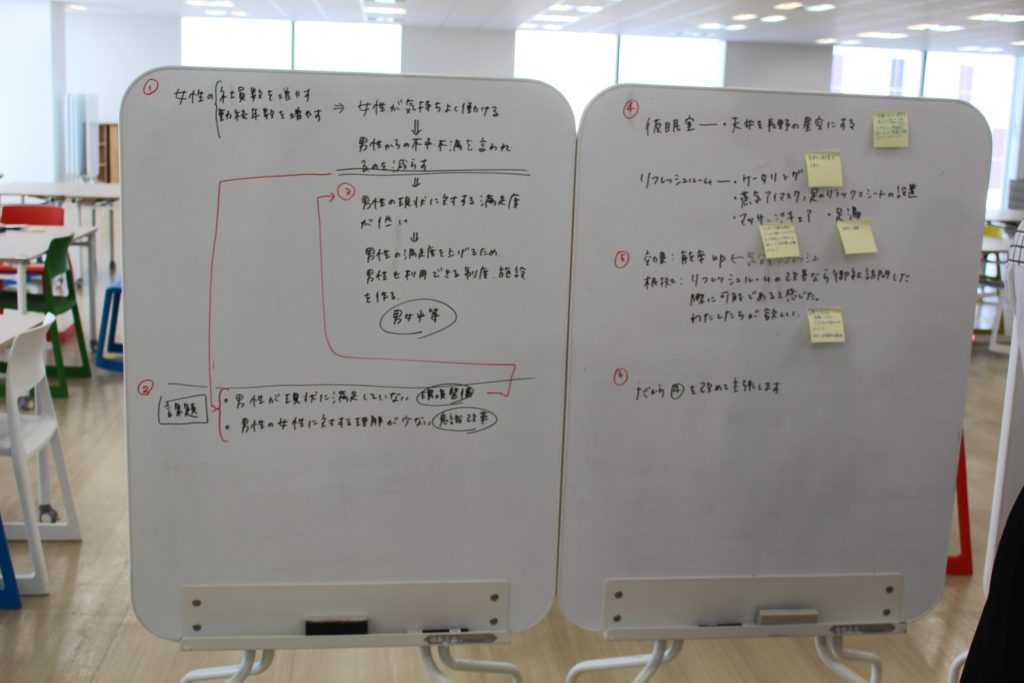 ①
女性の 社員数を増やす
勤続年数を増やす
⇒ 女性が気持ちよく働ける
⇓
男性からの不平不満を言われ
るのを減らす
⇓
③
男性の現状に対する満足度
が低い
⇓
男性の満足度を上げるため、
男性も利用できる制度、施設
を作る.
男女平等
②
課題
・男性が現状に満足していない 環境整備
・男性の女性に対する理解が少ない 意識改革
④
仮眠室 ― ・天井を長野の星空にする
リフレッシュルーム ― ・ケータリング
・蒸気アイマスク, 足のリラックスシートの設置
・マッサージチェア ・足湯
⑤
効果: 能率up ←
根拠: リフレッシュルームの改革なら御社訪問した
際に可能であると感じた。
わたしたちが欲しい.
⑥
だから ④ を改めて主張します